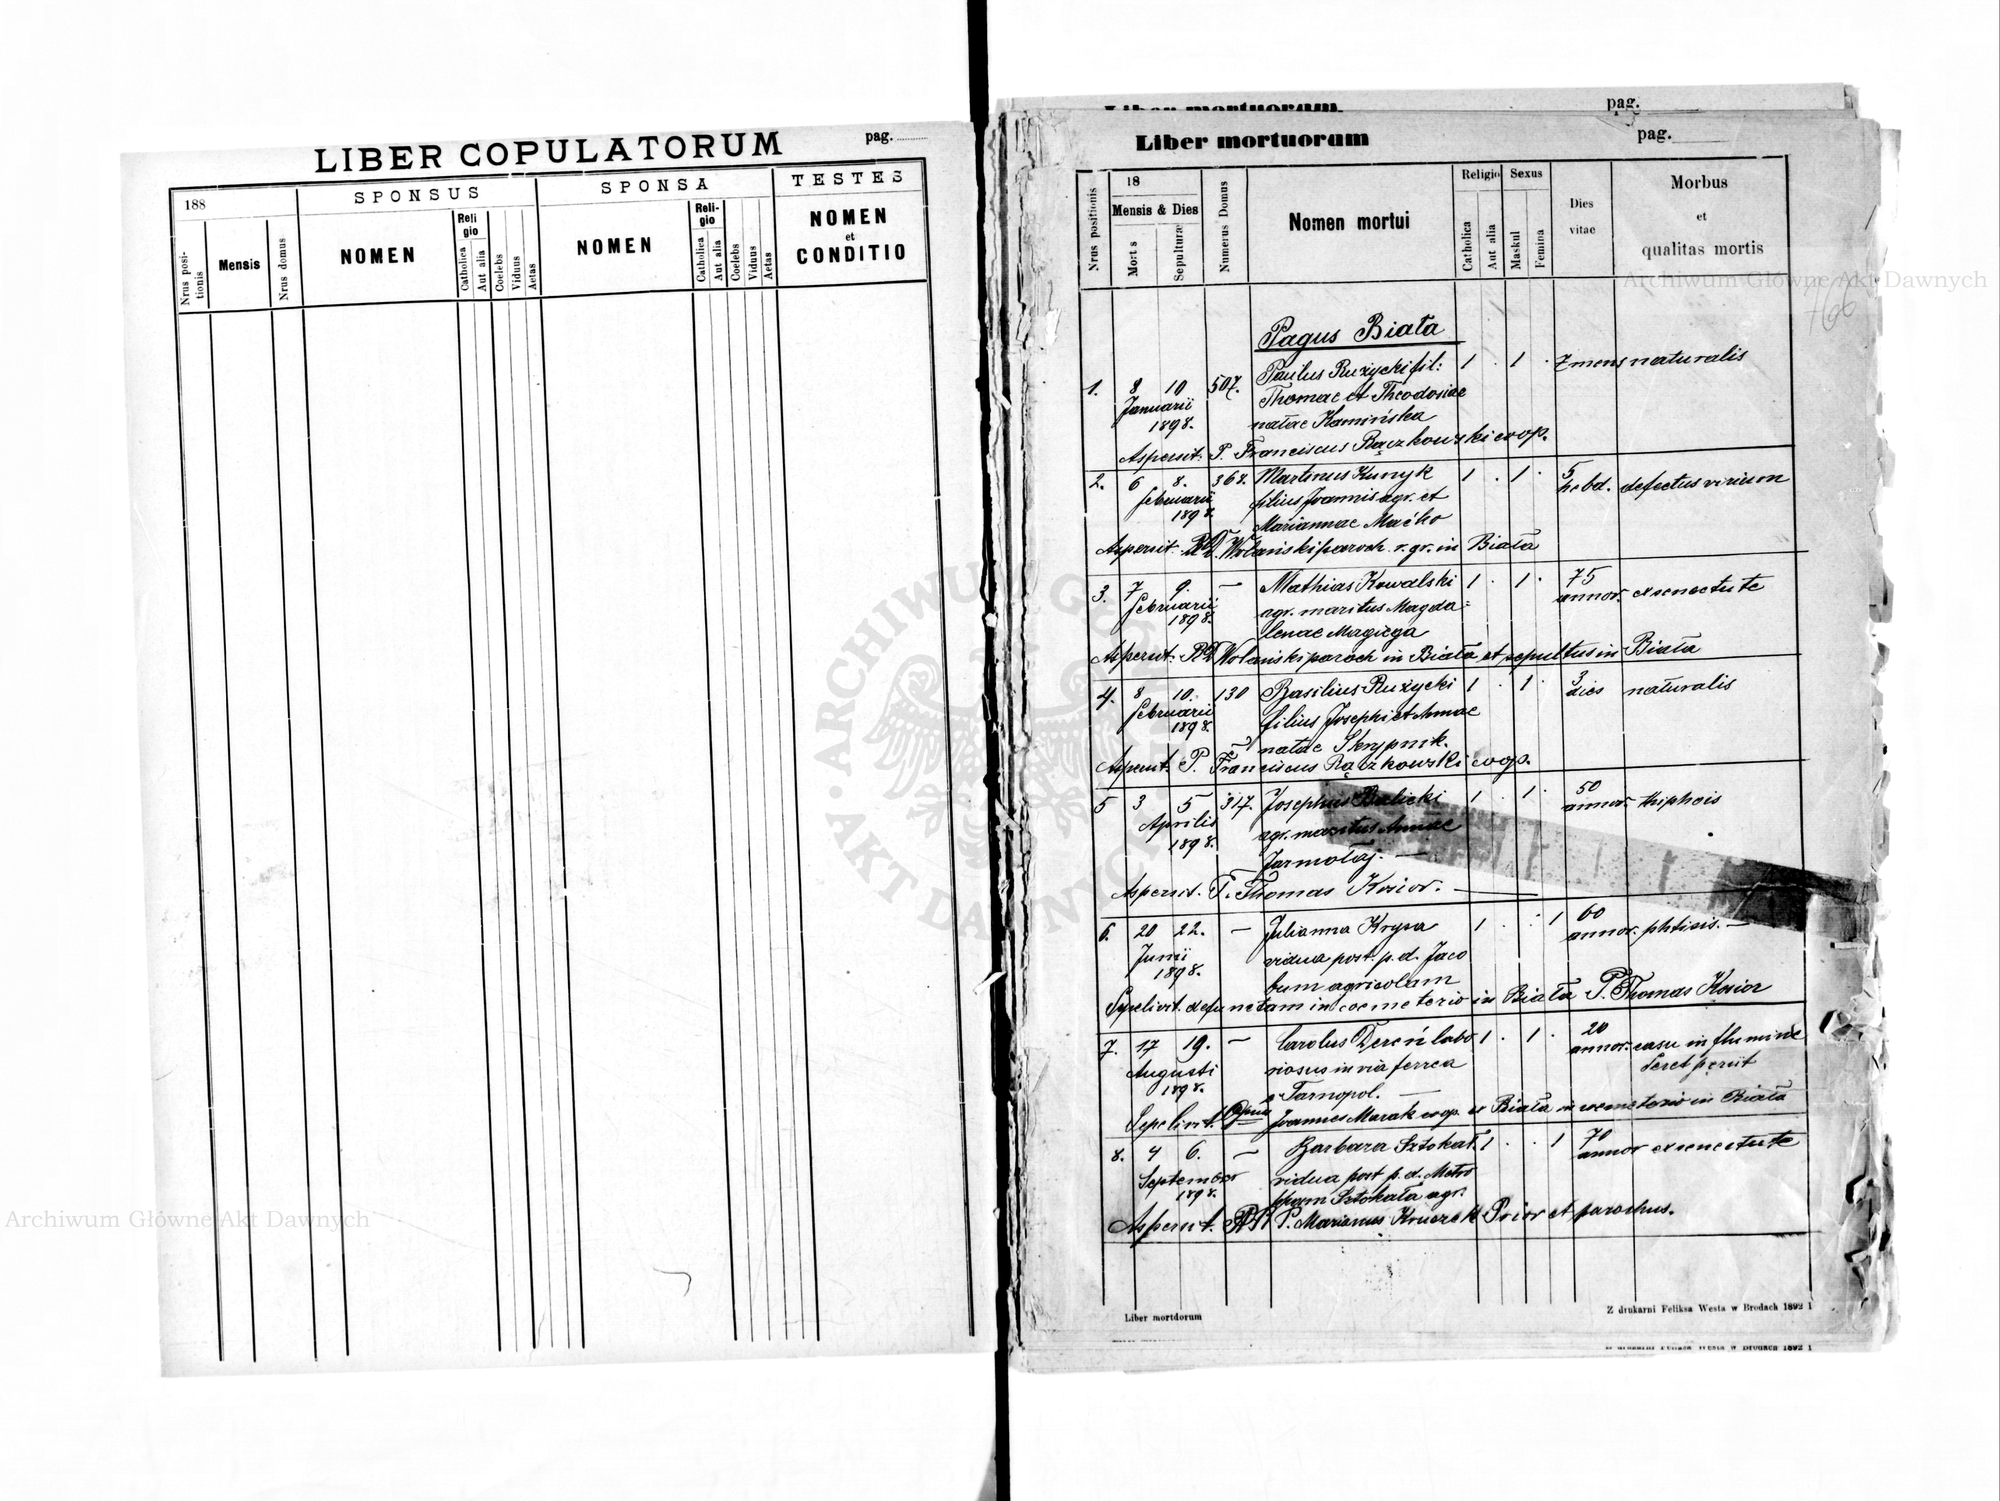 LIBER COPULATORUM
pag.
188
SPONSUS
SPONSA
TESTES
Nrus positionis
Mensis
Nrus domus
NOMEN
Religio
Catholica
Aut alia
Coelebs
Viduus
Aetas
NOMEN
Religio
Catholica
Aut alia
Coelebs
Viduus
Aetas
NOMEN
et
CONDITIO
Liber mortuorum
pag.
Liber mortuorum
pag.
Nrus positionis
18
Mensis & Dies
Mort s
Sepulturæ
Numerus Domus
Nomen mortui
Religio
Catholica
Aut alia
Sexus
Maskul
Femina
Dies
vitae
Morbus
et
qualitas mortis
766
Pagus Biała
1. 8 10 507. Paulus Rużycki fil: 1 . 1 . 7 mens naturalis
Januarii Thomae et Theodosiae
1898. natae Kamińska
Aspersit: P. Franciscus Rączkowski coop.
2. 6 8. 368. Martinus Kunyk 1 . 1 . 5 hebd. defectus virium
februarii filius Joannis agr. et
1898. Mariannae Maćko
Aspersit. Wolański paroch. r. gr. in Biała
3. 7 9. — Mathias Kowalski 1 . 1 . 75 annor. ex senectute
februarii agr. maritus Magda-
1898. lenae Magiega
Aspersit. Wolański paroch in Biała et sepultus in Biała
4. 8 10. 130 Basilius Rużycki 1 . 1 . 3 dies naturalis
februarii filius Josephi et Annae
1898. natae Skrypnik.
Aspersit. P. Franciscus Rączkowski coop.
5 3 5 317. Josephus Balicki 1 . 1 . 50 annor. thiphois
Aprilis agr. maritus Annae
1898. Jarmołaj. —
Aspersit. P. Thomas Kosior. —
6. 20 22. — Julianna Krysa 1 . : 1 60 annor. phtisis. —
Junii vidua post p. d. Jaco
1898. bum agricolam
Sepelivit defunctam in coemeterio in Biała P. Thomas Kosior
7. 17 19. — Carolus Dereń labo 1 . 1 . 20 annor. casu in flumine
Augusti riosus in via ferrea Seret periit
1898. Tarnopol. —
Sepelivit. Joannes Marak coop. in Biała in coemeterio in Biała
8. 4 6. — Barbara Sztokał. 1 . . 1 70 annor ex senectute
September vidua post p. d. Metro
1898. phanem Sztokała agr.
Aspersit. P. Marianus Kruczek Prior et parochus.
Liber mortdorum
Z drukarni Feliksa Westa w Brodach 1892 1
Z drukarni Feliksa Westa w Brodach 1892 1
Archiwum Główne Akt Dawnych
Archiwum Główne Akt Dawnych
ARCHIWUM GŁÓWNE · AKT DAWNYCH ·